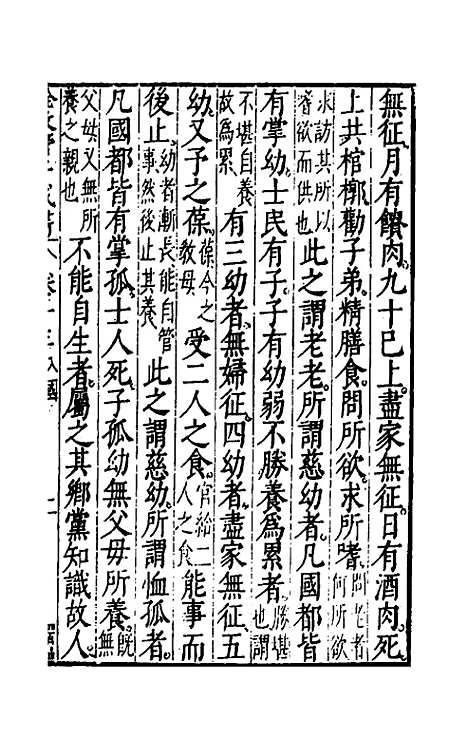 無征月有饋肉九十已上盡家無征日有酒肉死
上共棺槨勸子弟精膳食問所欲求所嗜問老者何所欲
求訪其所以嗜欲而供也此之謂老老所謂慈幼者凡國都皆
有掌幼士民有子子有幼弱不勝養爲累者勝堪也謂
不堪自養故爲累有三幼者無婦征四幼者盡家無征五
幼又予之葆葆今之教母受二人之食官給二人之食能事而
後止幼者漸長能自管事然後止其養此之謂慈幼所謂恤孤者
凡國都皆有掌孤士人死子孤幼無父母所養既無
父母又無所養之親也不能自生者屬之其鄉黨知識故人